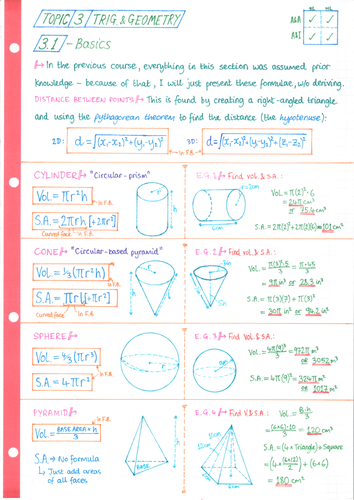 TOPIC 3 TRIG. & GEOMETRY
SL HL
A&A ✓ ✓
A&I ✓ ✓
3.1 - Basics
↳ In the previous course, everything in this section was assumed prior
knowledge - because of that, I will just present these formulae, w/o deriving.
DISTANCE BETWEEN POINTS ↳ This is found by creating a right-angled triangle
and using the pythagorean theorem to find distance (the hypotenuse):
2D: d = √(x₁-x₂)² + (y₁-y₂)² in F.B.
3D: d = √(x₁-x₂)² + (y₁-y₂)² + (z₁-z₂)²
CYLINDER ↳ "Circular-prism"
Vol = πr²h in F.B.
S.A. = 2πrh [+2πr²]
Curved face in F.B.
r
h
E.G.1 ↳ Find vol. & S.A.:
r=2cm
6cm
Vol = π(2)²·6
= 24π cm³
or 75.4 cm³
S.A. = 2π(2)²+2π(2)(6) = 101 cm²
CONE ↳ "Circular-based pyramid"
Vol = 1/3(πr²h)
S.A. = πrl [+πr²]
Curved face in F.B.
r
h
l
E.G.2 ↳ Find vol. & S.A.:
Vol = π(3)²·5/3 = π·45/3
= 9π in³ or 28.3 in³
S.A. = π(3)(7) + π(3)²
= 30π in² or 94.2 in²
SPHERE
Vol = 4/3(πr³)
S.A. = 4πr²
in F.B.
r
E.G.3 ↳ Find Vol & S.A.:
9m
Vol = 4π(9)³/3 = 972π m³
or 3052 m³
S.A. = 4π(9)² = 324π m²
or 1017 m²
PYRAMID
Vol = BASE AREA × h / 3
in F.B.
S.A. → No formula
↳ Just add areas
of all faces
BASE
h
E.G.4 ↳ Find V. & S.A.:
10cm
6cm
Vol = B·h/3
= (6×6)·10/3 = 120 cm³
S.A. = (4 × Triangle) + Square
= (4 × (6×12)/2) + (6×6)
= 180 cm²